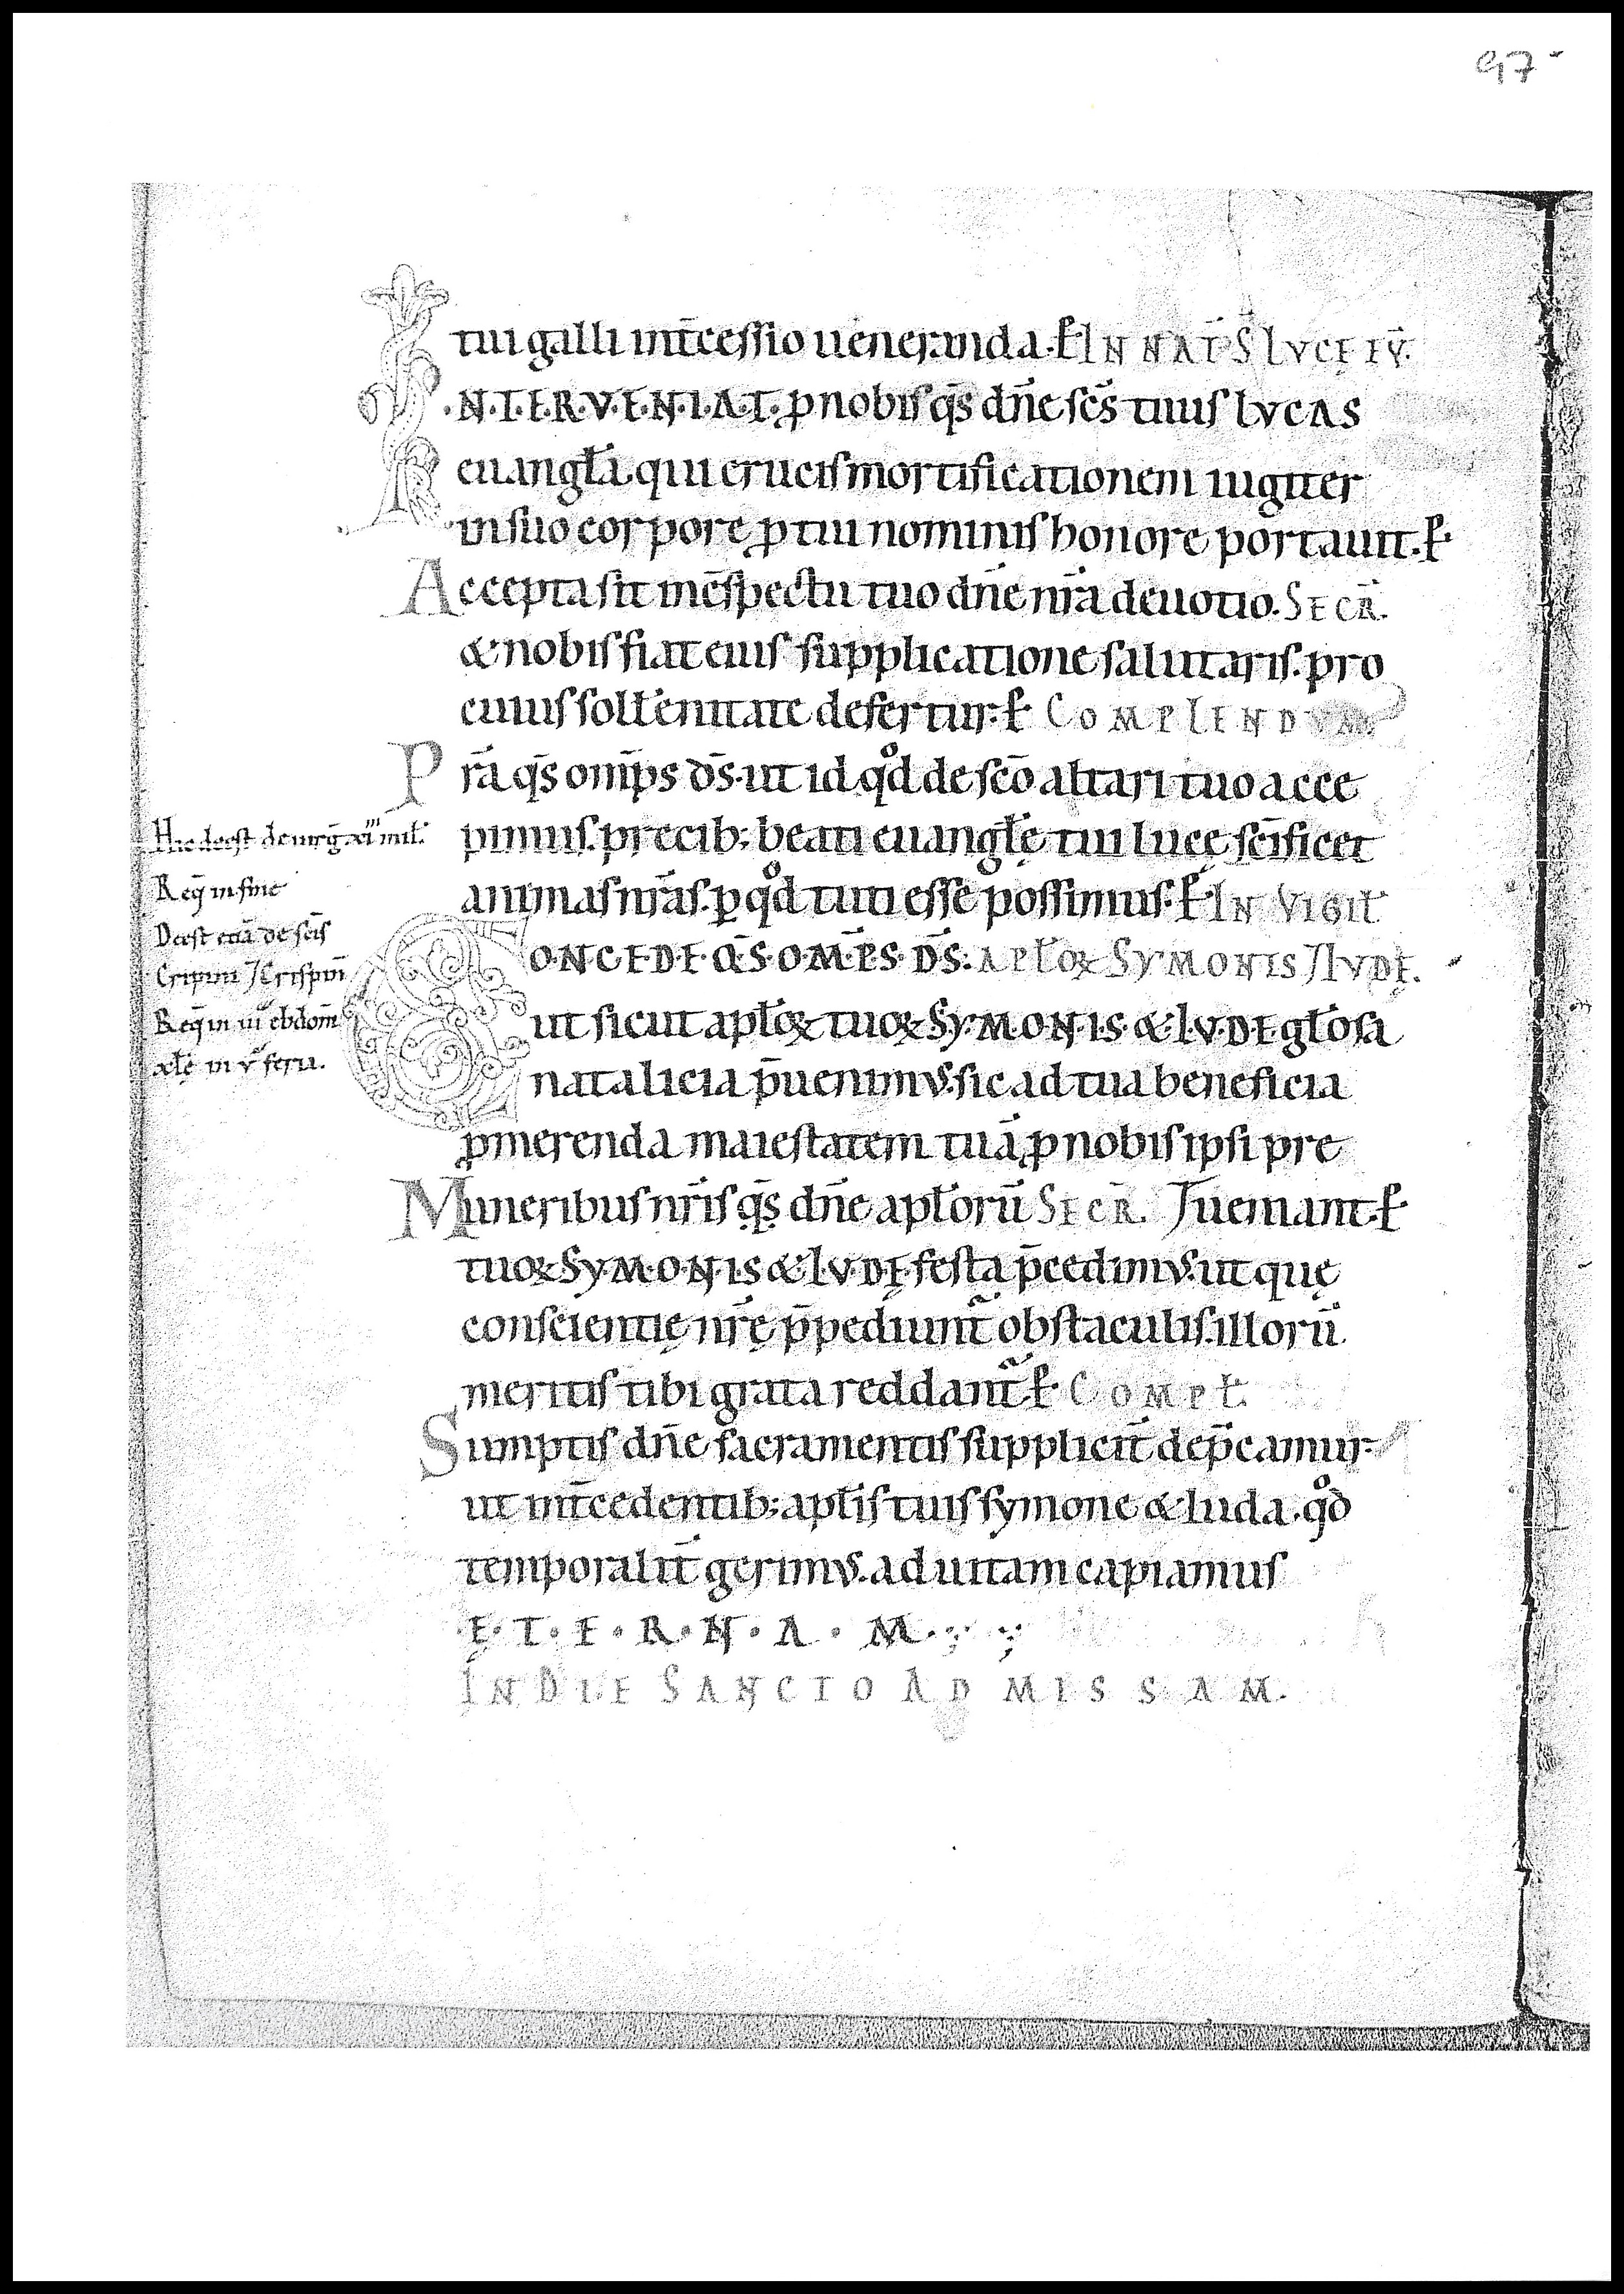 97
tui galli int̄cessio ueneranda. ꝑ IN NAT̄ S̄ LVCĘ EV̄.
I.N.T.E.R.V.E.N.I.A.T. ꝓ nobis q̄s dn̄e sc̄s tuus LVCAS
euangl̄a. qui crucis mortificationem iugiter
in suo corpore ꝓ tui nominis honore portauit. ꝑ
Accepta sit in c̄spectu tuo dn̄e nr̄a deuotio. SECR̄.
& nobis fiat eius supplicatione salutaris. pro
cuius soll̄ennitate defertur. ꝑ COMPLENDVM
Pr̄a q̄s om̄ps d̄s. ut id qd̊ de sc̄o altari tuo acce
pimus. precib; beati euangl̄ę tui lucę sc̄ificet
animas nr̄as. ꝑ qd̊ tuti esse possimus. ꝑ IN VIGIL̄
C.O.N.C.E.D.E. Q̄.S. O.M̄.P.S. D̄S. APL̄OꝜ SYMONIS ⁊ IVDĘ.
ut sicut apl̄oꝝ tuoꝝ SY.M.O.N.I.S. & I.V.D.E. gl̄osa
natalicia p̄uenimus. sic ad tua beneficia
ꝓmerenda maiestatem tuā ꝓ nobis ipsi pre
Muneribus nr̄is q̄s dn̄e apl̄orū SECR̄. ⁊ueniant. ꝑ
tuoꝝ SY.M.O.N.I.S. & I.V.D.Ę. festa p̄cedimus. ut quę
conscientię nr̄ę p̄pediunt̄ obstaculis. illorū
meritis tibi grata reddant̄. ꝑ COMPL̄.
Sumptis dn̄e sacramentis supplicit̄ dep̄camur
ut int̄cedentib; apl̄is tuis symone & Iuda. qd̊
temporalit̄ gerimus. ad uitam capiamus
Ę.T.E.R.N.A.M.
IN DIE SANCTO AD MISSAM.
Hic deest de uirḡ xi mil̄.
Req̄ in fine
Deest etiā de sc̄is
Cripini ⁊ Crispin̄
Req̄ in iii ebdom̄
in v feria.